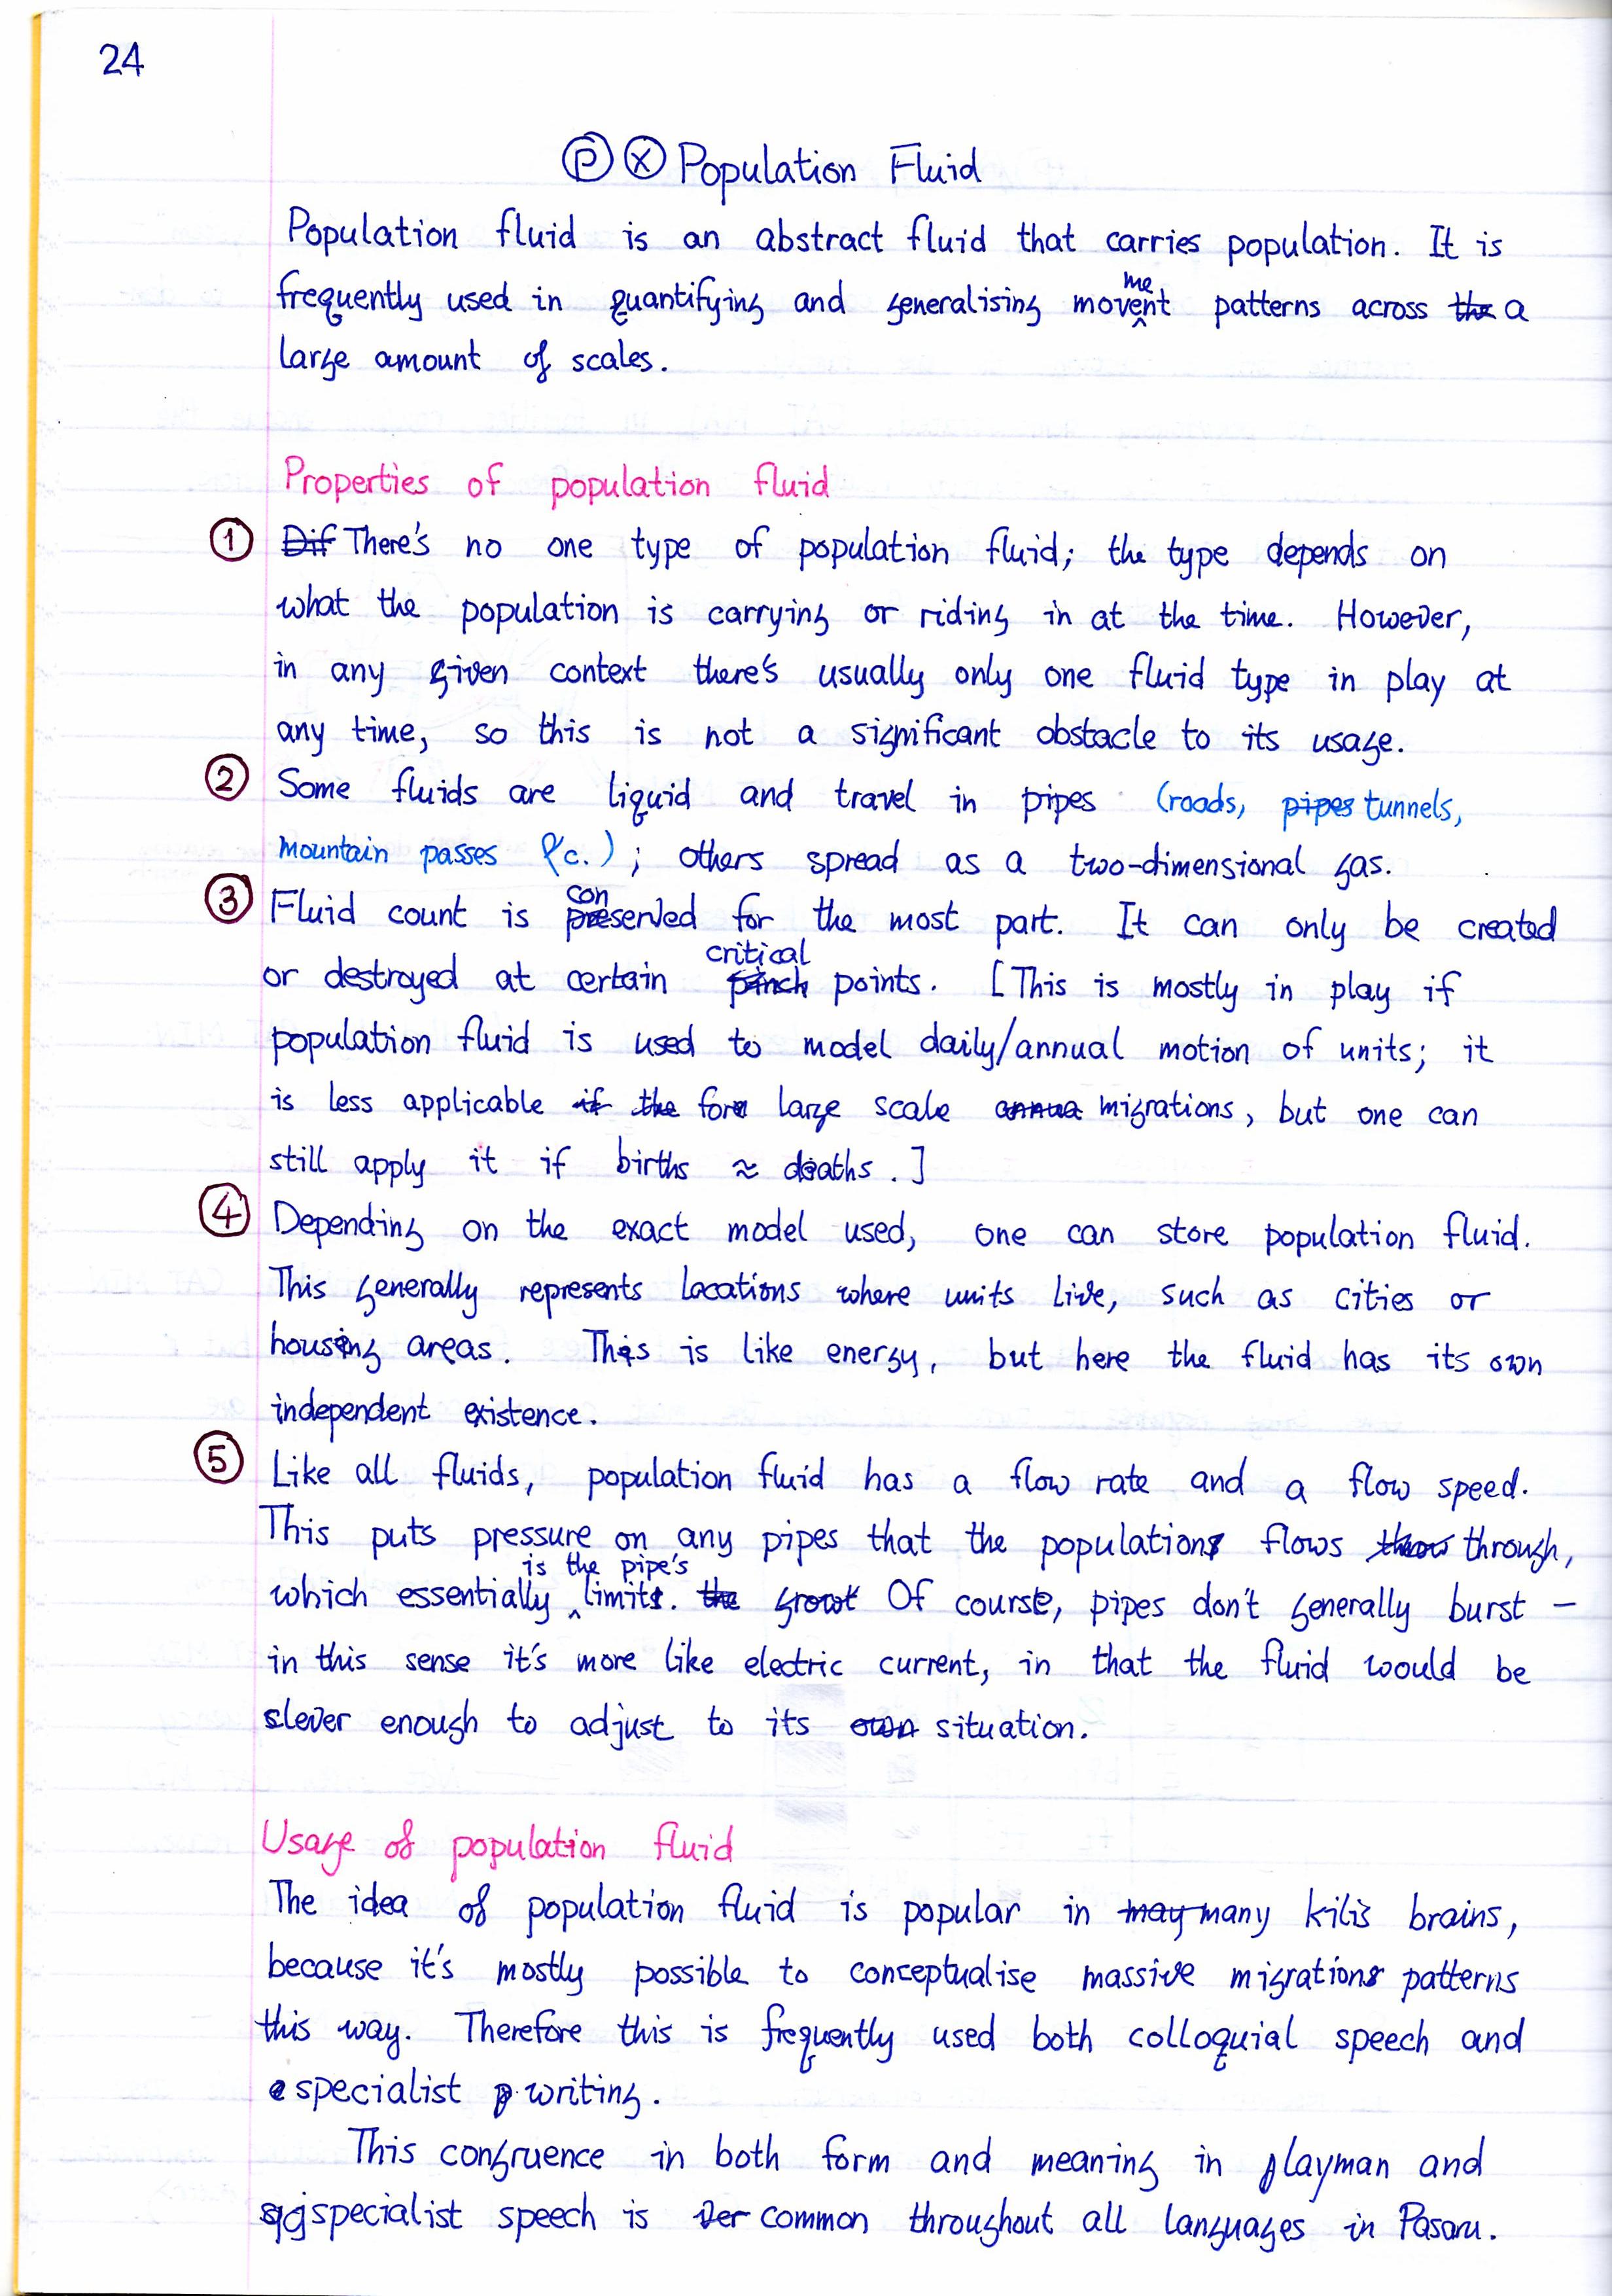 24
Ⓟ Ⓧ Population Fluid
Population fluid is an abstract fluid that carries population. It is
frequently used in quantifying and generalising movement patterns across the a
large amount of scales.
Properties of population fluid
① Dif There's no one type of population fluid; the type depends on
what the population is carrying or riding in at the time. However,
in any given context there's usually only one fluid type in play at
any time, so this is not a significant obstacle to its usage.
② Some fluids are liquid and travel in pipes (roads, pipes tunnels,
mountain passes &c.); others spread as a two-dimensional gas.
③ Fluid count is conserved for the most part. It can only be created
or destroyed at certain pinch critical points. [This is mostly in play if
population fluid is used to model daily/annual motion of units; it
is less applicable if the for large scale annua migrations, but one can
still apply it if births ≈ deaths.]
④ Depending on the exact model used, one can store population fluid.
This generally represents locations where units live, such as cities or
housing areas. This is like energy, but here the fluid has its own
independent existence.
⑤ Like all fluids, population fluid has a flow rate and a flow speed.
This puts pressure on any pipes that the population flows throw through,
which essentially is the pipe's limit. the growt Of course, pipes don't generally burst –
in this sense it's more like electric current, in that the fluid would be
clever enough to adjust to its own situation.
Usage of population fluid
The idea of population fluid is popular in may many kilis brains,
because it's mostly possible to conceptualise massive migration patterns
this way. Therefore this is frequently used both colloquial speech and
specialist writing.
This congruence in both form and meaning in layman and
specialist speech is ver common throughout all languages in Pasaru.